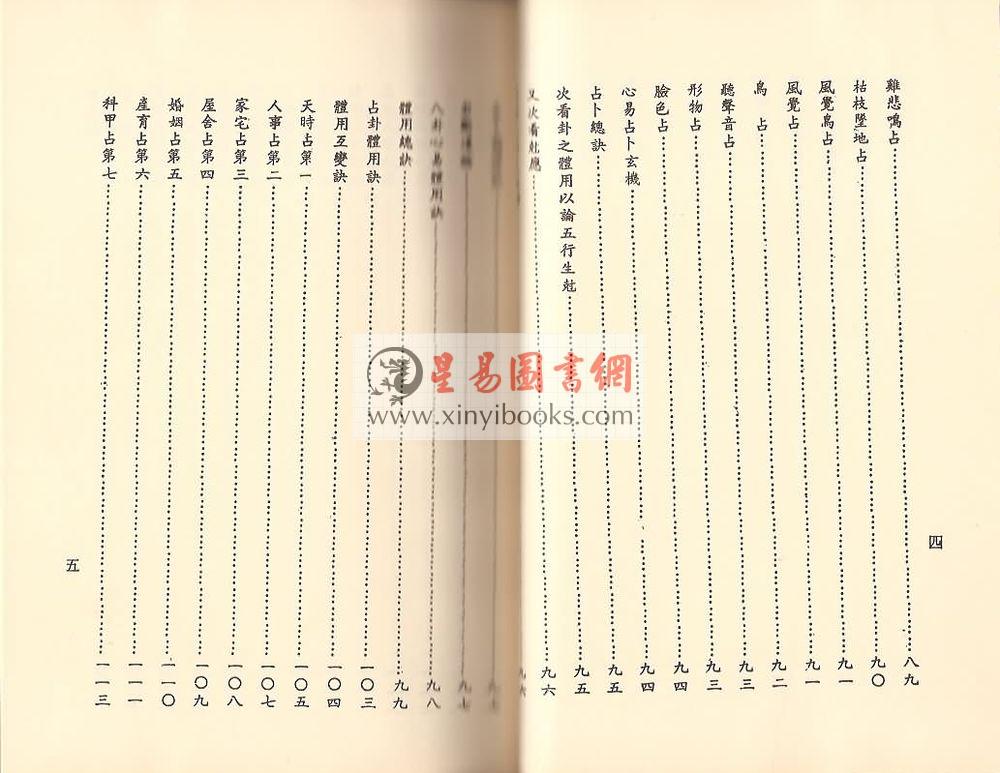 雞悲鳴占……八九
枯枝墜地占……九〇
風覺鳥占……九一
風覺占……九一
鳥　占……九二
聽聲音占……九三
形物占……九三
臉色占……九四
心易占卜玄機……九四
占卜總訣……九五
次看卦之體用以論五行生尅……九五
又次看尅應……九六
九六
四
九七
九七
八卦心易體用訣……九八
體用總訣……九九
占卦體用訣……一〇三
體用互變訣……一〇四
天時占第一……一〇五
人事占第二……一〇七
家宅占第三……一〇八
屋舍占第四……一〇九
婚姻占第五……一一〇
産育占第六……一一一
科甲占第七……一一三
五
星易圖書網
www.xinyibooks.com